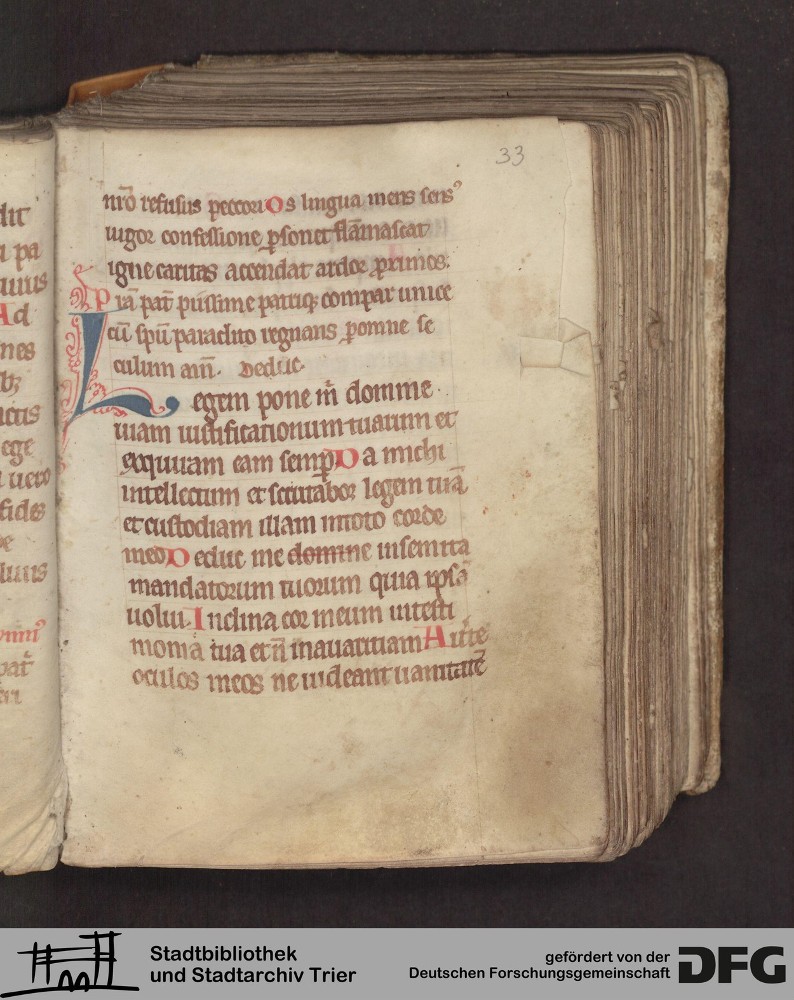 33
nr̄o refusus peccori Os lingua mens sens᾽
uigor confessione ꝑsonet flāmascat
igne caritas accendat ardor ꝓximos.
Pr̄ia pat̄ piissime patriqꝫ compar unice
cū spū paraclito regnans ꝑ omne se
culum am̄. Deduc.
Legem pone m̄ domine
uiam iustificationum tuarum et
exquiram eam semꝑ Da michi
intellectum et scrutabor legem tuā
et custodiam illam in toto corde
meo Deduc me domine in semita
mandatorum tuorum quia ipsā
uolui. Inclina cor meum in testi
monia tua et n̄ in auaritiam Auerte
oculos meos ne uideant uanitatē
dit
pa
Ad
nes
ege
uero
fides
pat̄
Stadtbibliothek
und Stadtarchiv Trier
gefördert von der
Deutschen Forschungsgemeinschaft
DFG